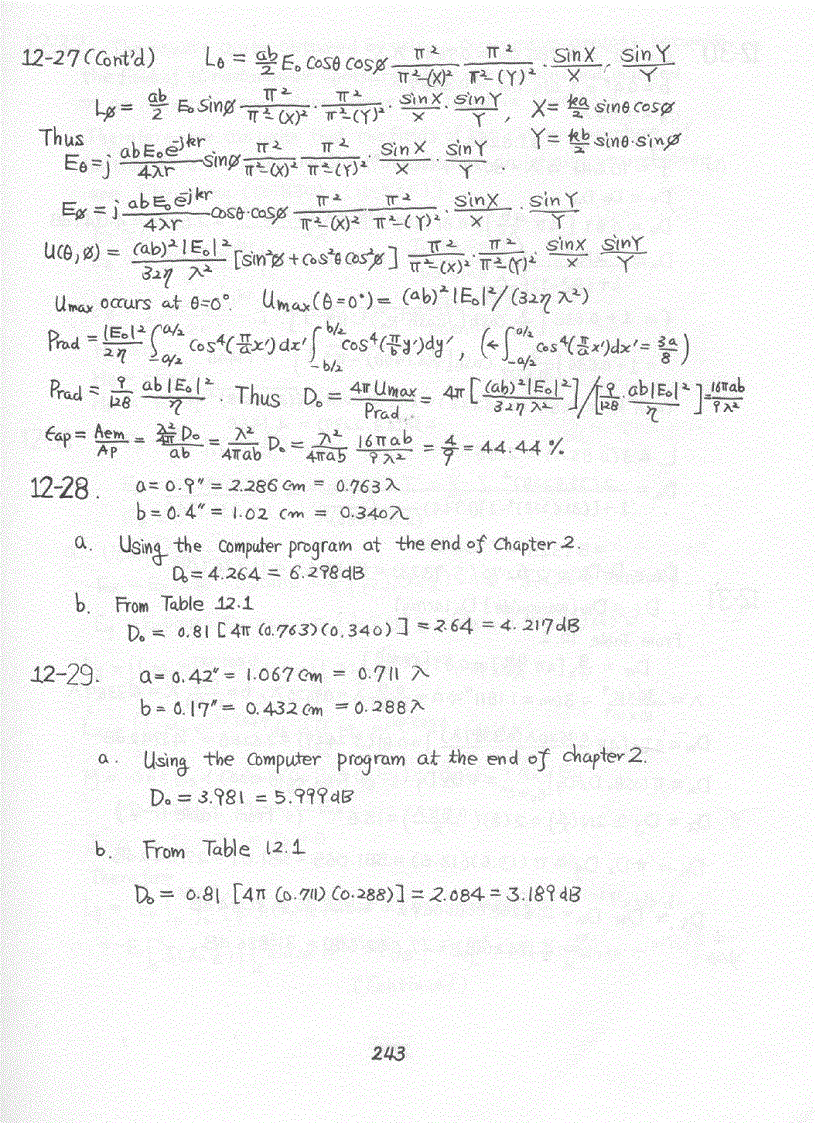 12-27 (Cont'd) Lθ = ab/2 E₀ cosθ cosø π²/(π²-(X)²) π²/(π²-(Y)²) · sinX/X · sinY/Y
Lø = ab/2 E₀ sinø π²/(π²-(X)²) · π²/(π²-(Y)²) · sinX/X · sinY/Y , X = ka/2 sinθ cosø
Thus Y = kb/2 sinθ·sinø
Eθ = j abE₀e^-jkr/4λr sinø π²/(π²-(X)²) π²/(π²-(Y)²) · sinX/X · sinY/Y
Eø = j abE₀e^-jkr/4λr cosθ·cosø π²/(π²-(X)²) · π²/(π²-(Y)²) · sinX/X · sinY/Y
U(θ,ø) = (ab)²|E₀|²/32η λ² [sin²ø + cos²θ cos²ø] π²/(π²-(X)²) · π²/(π²-(Y)²) · sinX/X sinY/Y
Umax occurs at θ=0°. Umax(θ=0°) = (ab)²|E₀|²/(32η λ²)
Prad = |E₀|²/2η ∫_-a/2^a/2 cos⁴(π/a x')dx' ∫_-b/2^b/2 cos⁴(π/b y')dy' , (← ∫_-a/2^a/2 cos⁴(π/a x')dx' = 3a/8)
Prad = 9/128 ab|E₀|²/η . Thus D₀ = 4πUmax/Prad = 4π [(ab)²|E₀|²/32η λ²] / [9/128 · ab|E₀|²/η] = 16πab/9λ²
εap = Aem/Ap = λ²/4π D₀/ab = λ²/4πab D₀ = λ²/4πab 16πab/9λ² = 4/9 = 44.44 %
12-28. a = 0.9" = 2.286 cm = 0.763 λ
b = 0.4" = 1.02 cm = 0.340 λ
a. Using the computer program at the end of Chapter 2.
D₀ = 4.264 = 6.298 dB
b. From Table 12.1
D₀ = 0.81 [4π (0.763)(0.340)] = 2.64 = 4.217 dB
12-29. a = 0.42" = 1.067 cm = 0.711 λ
b = 0.17" = 0.432 cm = 0.288 λ
a. Using the computer program at the end of chapter 2.
D₀ = 3.981 = 5.999 dB
b. From Table 12.1
D₀ = 0.81 [4π (0.711)(0.288)] = 2.084 = 3.189 dB
243